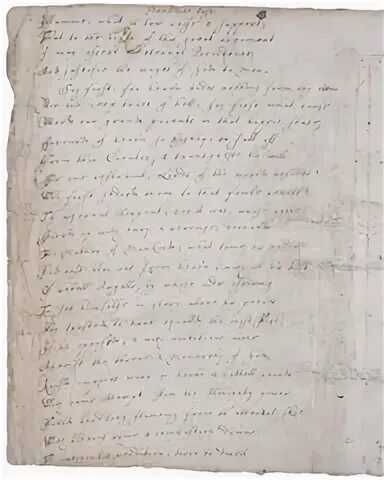 Illumine, what is low raise & support,
That to the highth of this great argument
I may assert Eternal Providence
And justifie the wayes of God to men.
Say first, for heaven hides nothing from thy view
Nor the deep tract of hell, say first what cause
Mov'd our grand parents in that happie state
Favour'd of heav'n so highly, to fall off
From their Creator, & transgress his will
For one restraint, Lords of the world besides?
Who first seduc'd them to that foule revolt?
Th' infernal Serpent; hee it was, whose guile
Stirr'd up with envy & revenge, deceiv'd
The mother of Mankinde, what time his pride
Had cast him out from Heav'n, with all his host
Of rebel Angels, by whose aide aspiring
To set himselfe in glory above his peeres
He trusted to have equal'd the most High,
If he oppos'd; & with ambitious aime
Against the throne & Monarchy of God
Rais'd impious warr in heav'n & battell proud
With vaine attempt. Him the Almighty power
Hurld headlong flaming from th' ethereal skie
With hideous ruine & combustion downe
To bottomless perdition, there to dwell